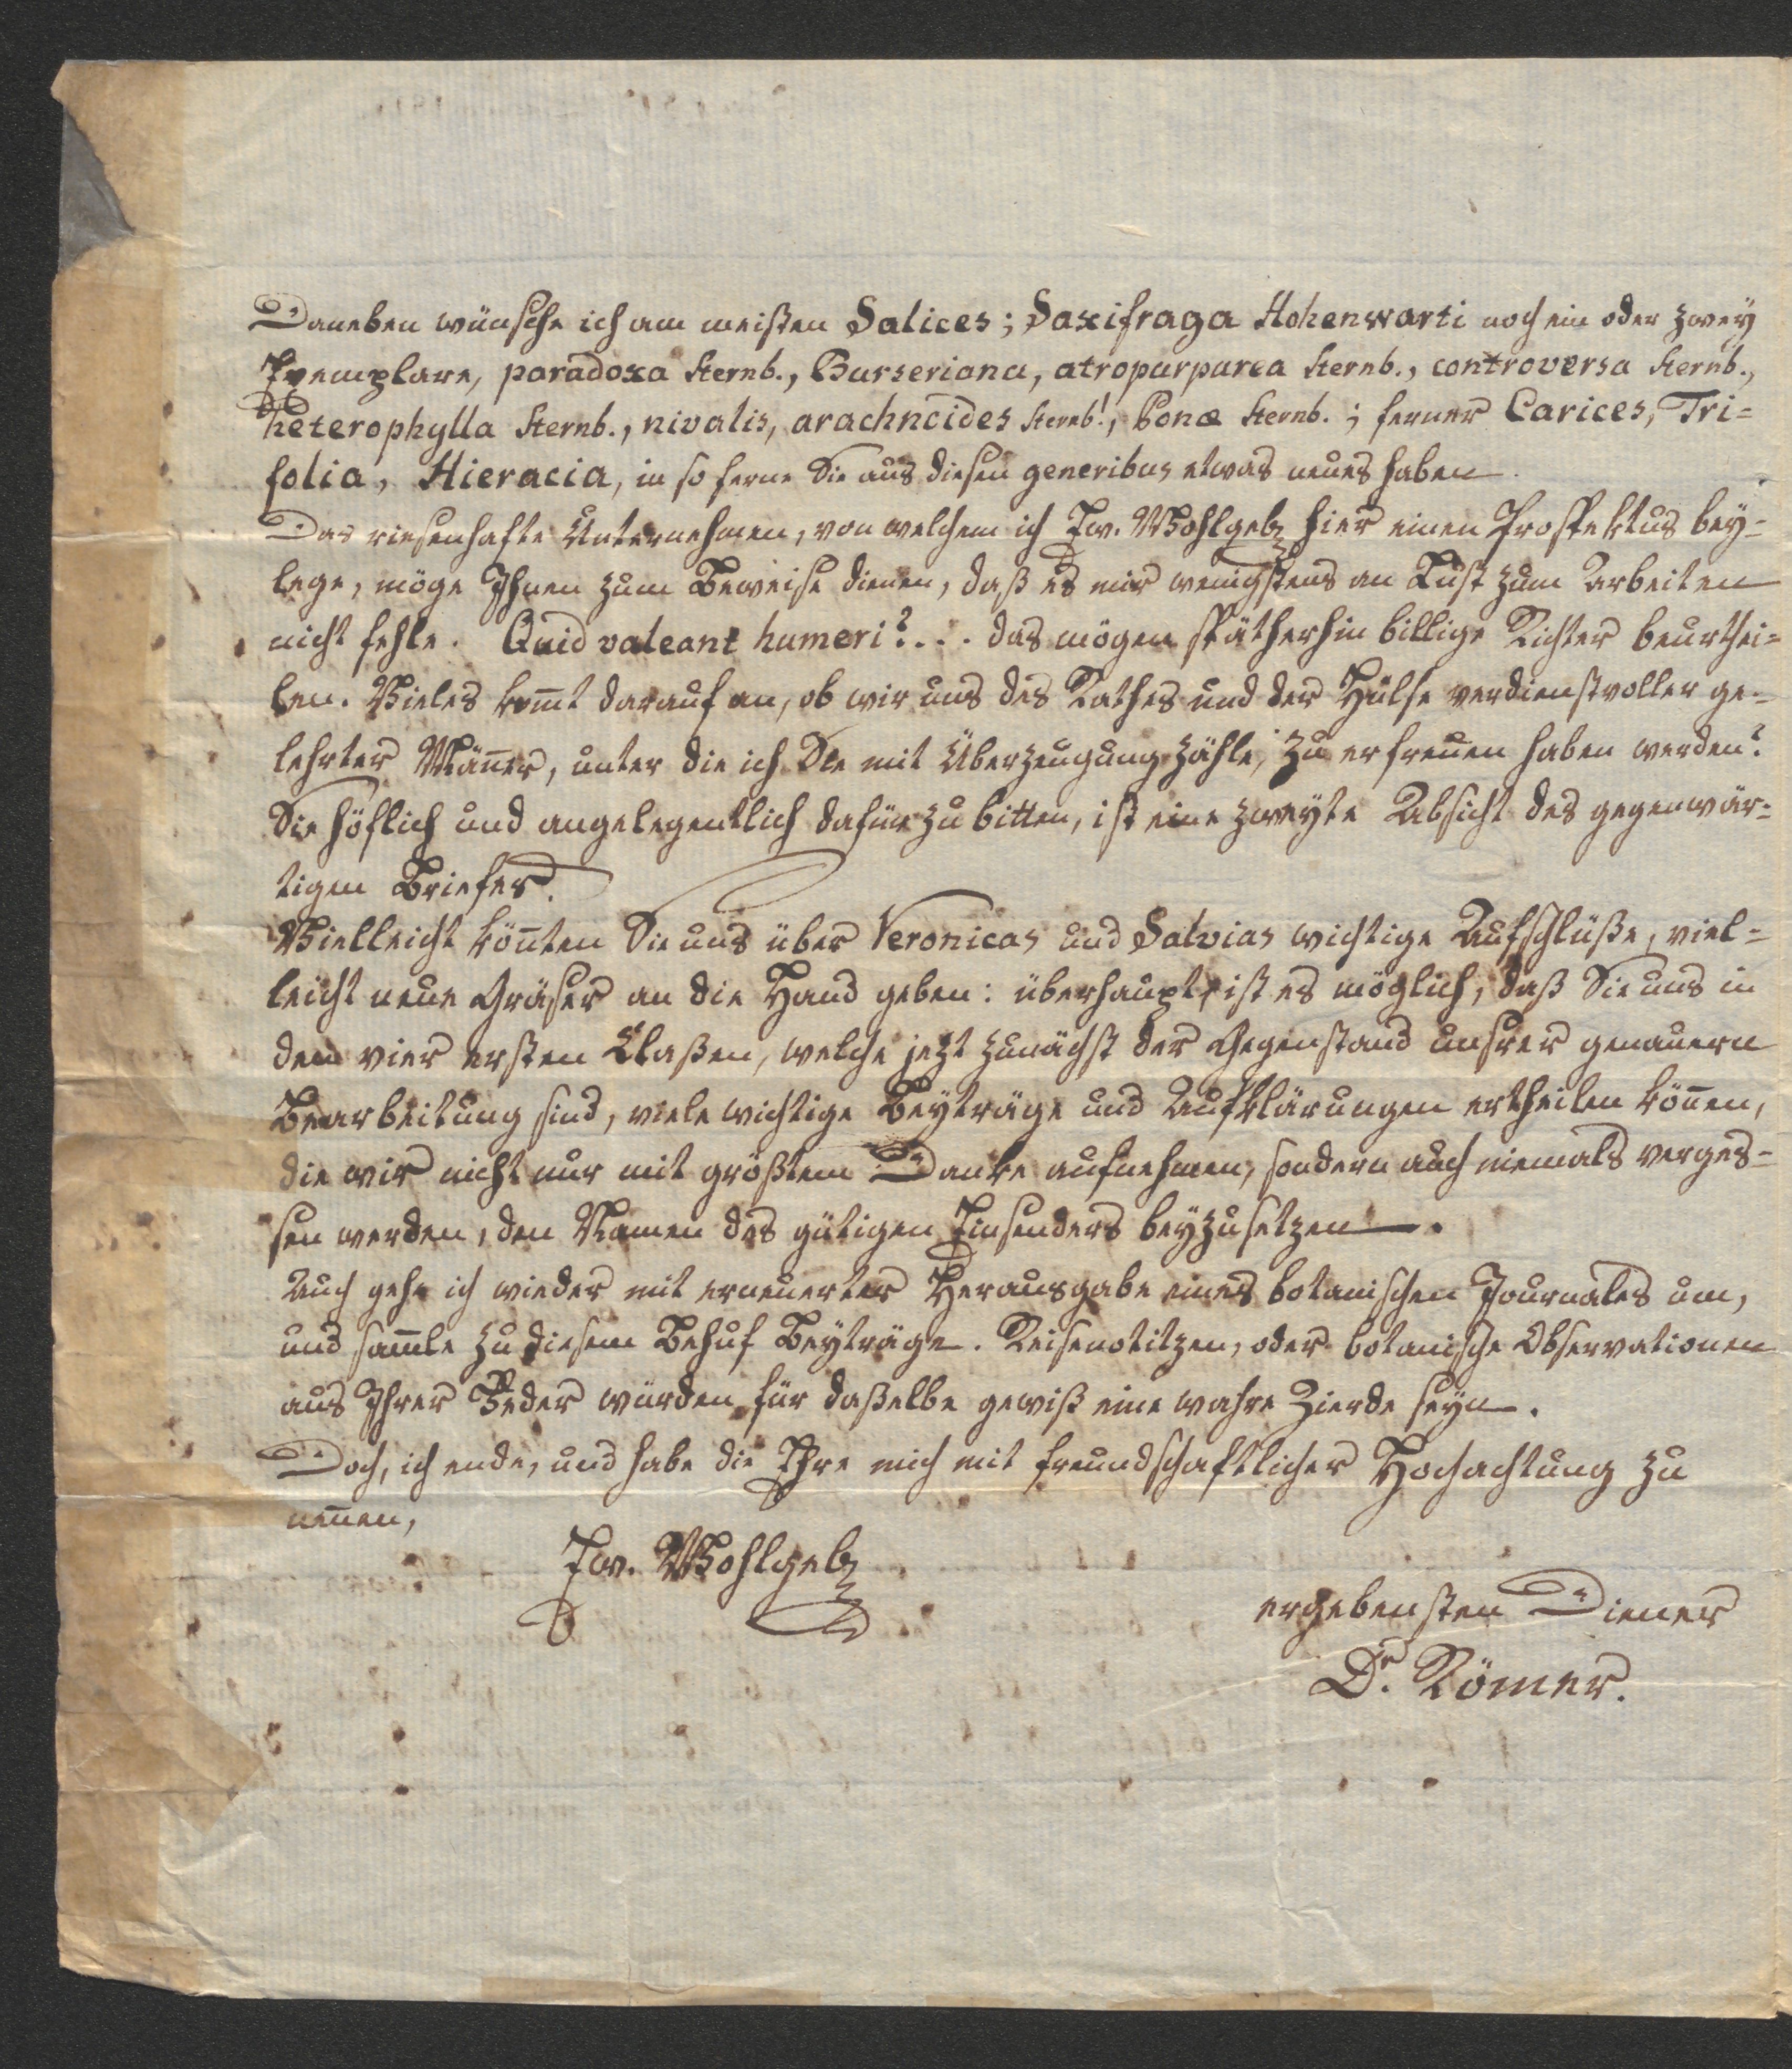 Daneben wünsche ich am meisten Salices; Saxifraga Hohenwarti noch ein oder zwey
Exemplare, paradoxa Sternb., Burseriana, atropurpurea Sternb., controversa Sternb.,
heterophylla Sternb., nivalis, arachnoides Sternb!, Ponæ Sternb. ; ferner Carices, Tri=
folia, Hieracia, in so ferne Sie aus diesen generibus etwas neues haben.
Das riesenhafte Unternehmen, von welchem ich Ew. Wohlgeb hier einen Prospektus bey=
lege, möge Ihnen zum Beweise dienen, daß es mir wenigstens an Lust zum Arbeiten
nicht fehle. Quid valeant humeri?... das mögen spätherhin billige Richter beurthei=
len. Vieles kom̄t darauf an, ob wir uns des Rathes und der Hülfe verdienstvoller ge=
lehrter Mäñer, unter die ich Sie mit Überzeugung zähle, zu erfreuen haben werden?
Sie höflich und angelegentlich dafür zu bitten, ist eine zweyte Absicht des gegenwär=
tigen Briefes.
Vielleicht köñten Sie uns über Veronicas und Salvias wichtige Aufschlüße, viel=
leicht neue Gräser an die Hand geben: überhaupt ist es möglich, daß Sie uns in
den vier ersten Claßen, welche jezt zunächst der Gegenstand unsrer genauern
Bearbeitung sind, viele wichtige Beyträge und Aufklärungen ertheilen köñen,
die wir nicht nur mit größtem Danke aufnehmen, sondern auch niemals verges=
sen werden, den Namen des gütigen Einsenders beyzusetzen.
Auch gehe ich wieder mit erneuerter Herausgabe eines botanischen Journales um,
und sam̄le zu diesem Behuf Beyträge. Reisenotitzen, oder botanische Observationen
aus Ihrer Feder würden für daßelbe gewiß eine wahre Zierde seyn.
Doch, ich ende, und habe die Ehre mich mit freundschaftlicher Hochachtung zu
neñen,
Ew. Wohlgeb
ergebensten Diener
Dr. Römer.